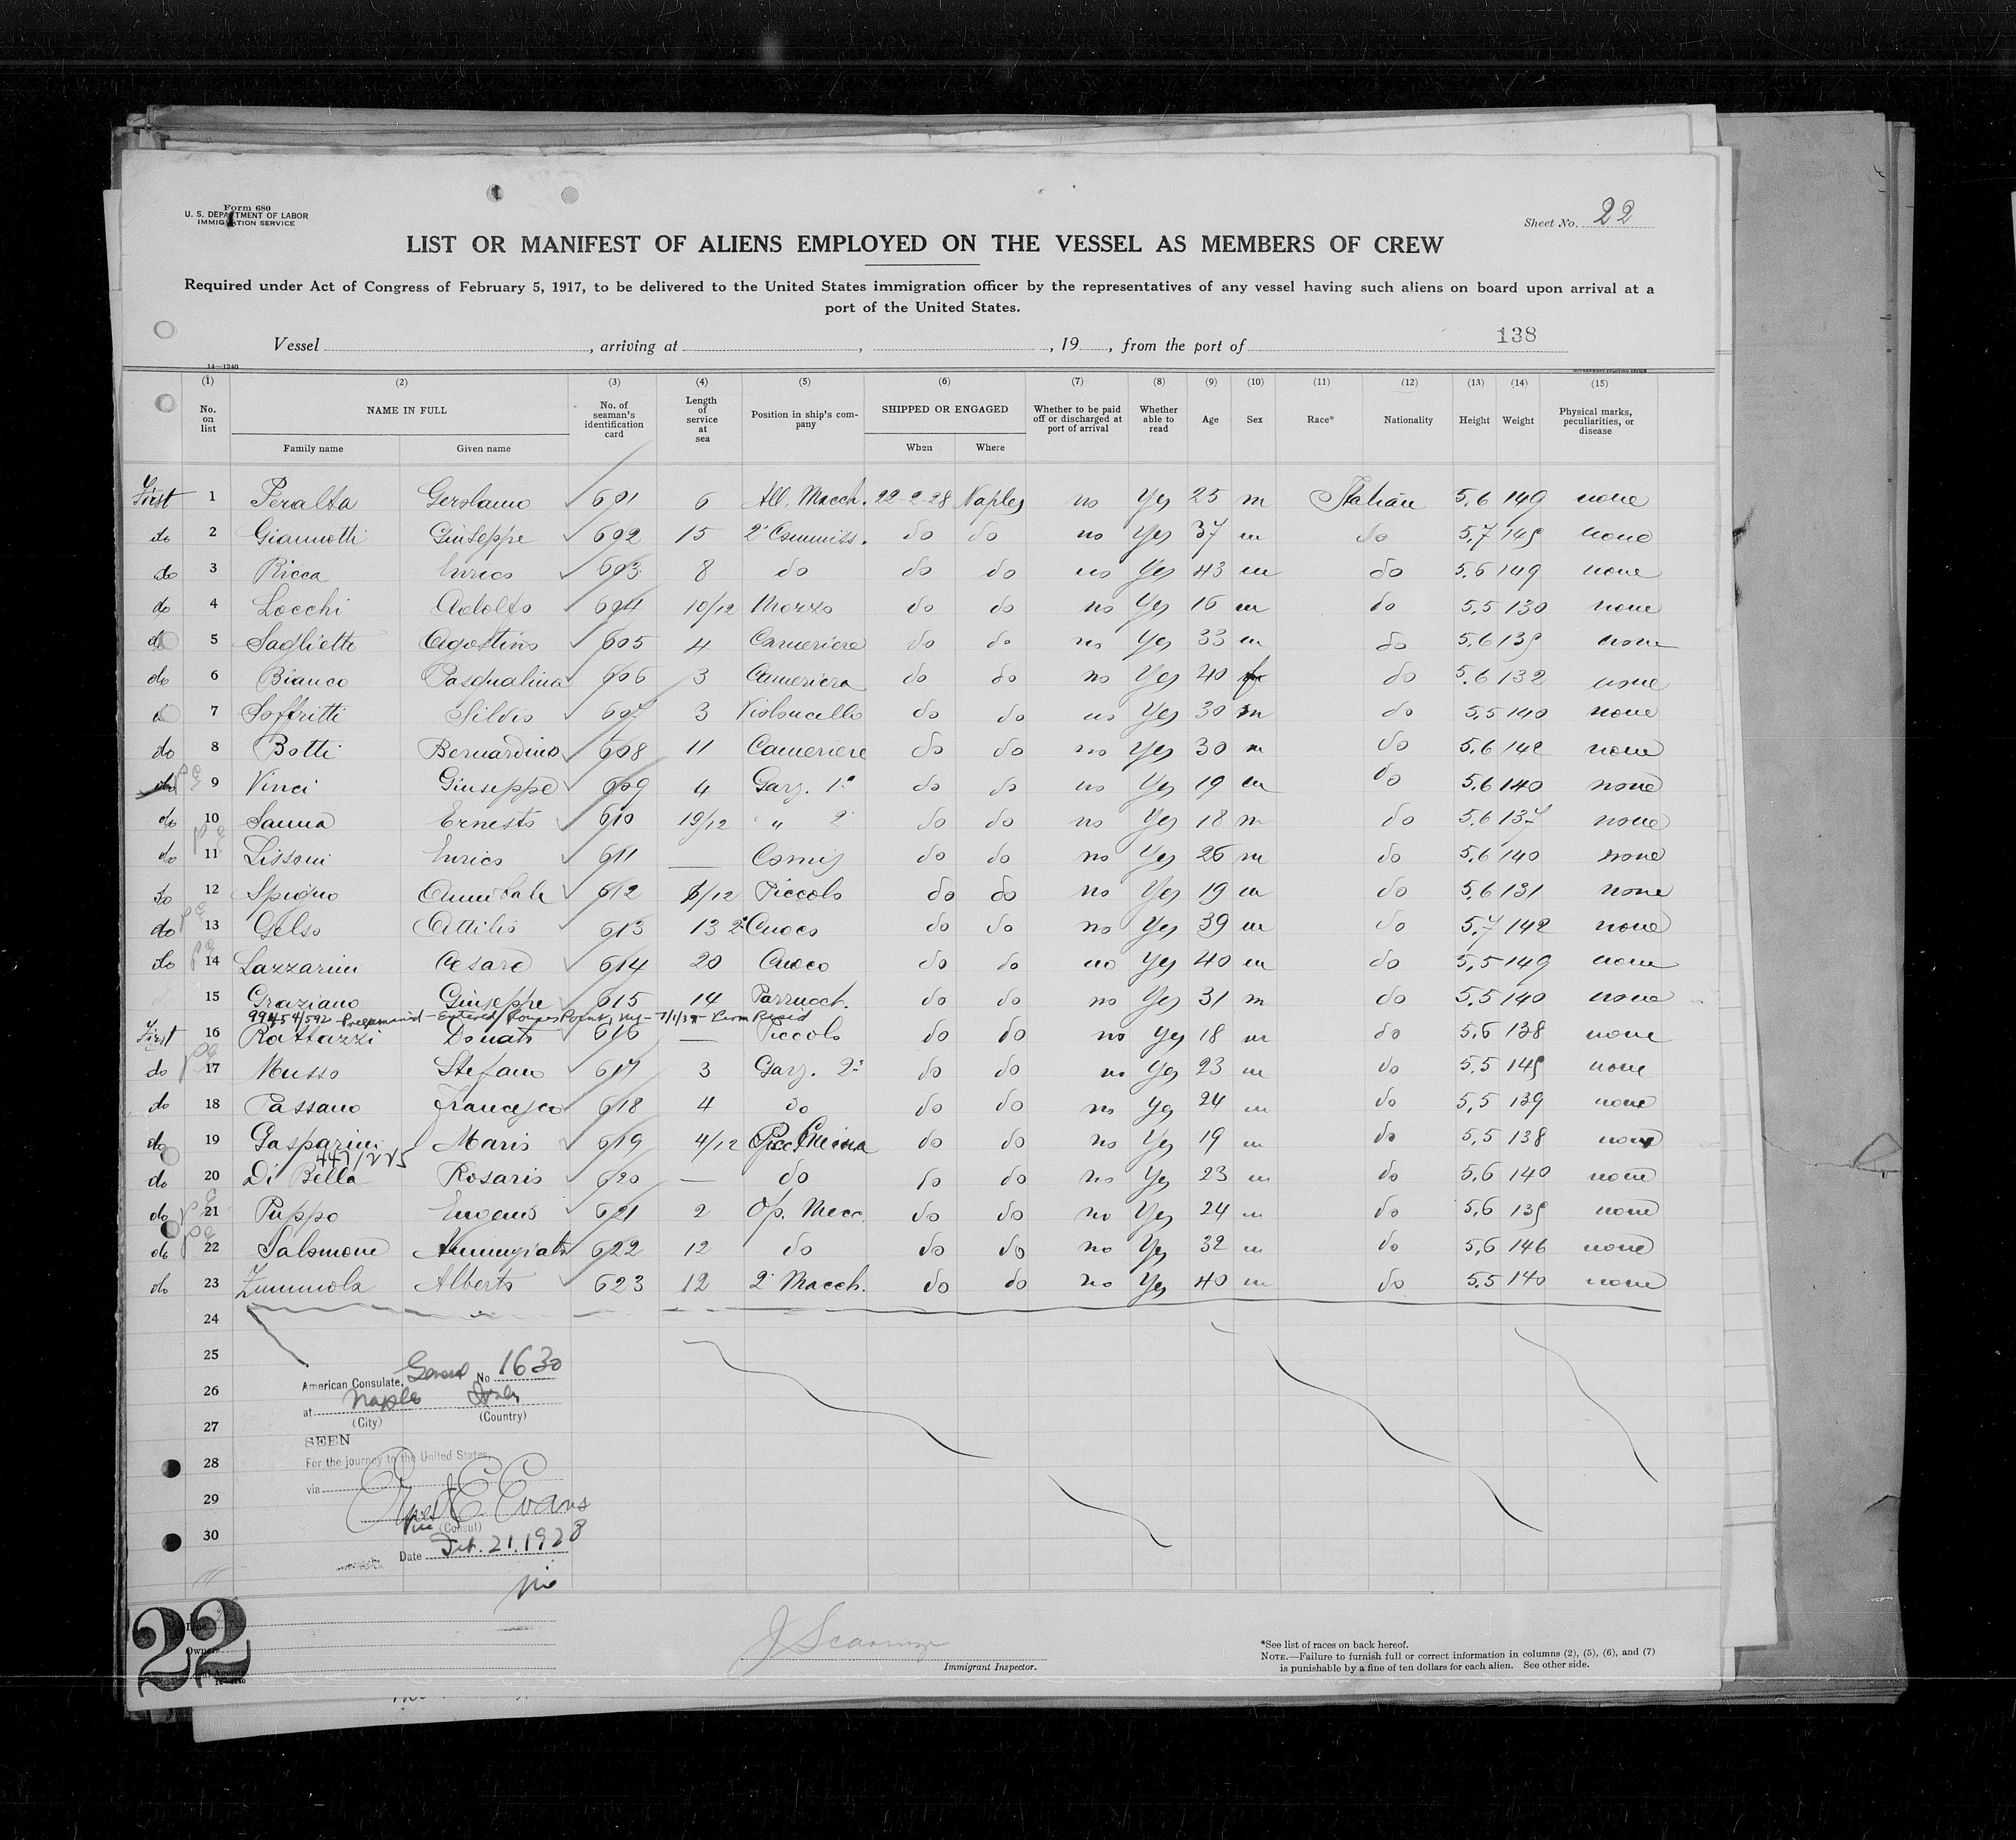 Form 680
U. S. DEPARTMENT OF LABOR
IMMIGRATION SERVICE
Sheet No. 22
LIST OR MANIFEST OF ALIENS EMPLOYED ON THE VESSEL AS MEMBERS OF CREW
Required under Act of Congress of February 5, 1917, to be delivered to the United States immigration officer by the representatives of any vessel having such aliens on board upon arrival at a
port of the United States.
138
Vessel , arriving at , , 19 , from the port of
14—1240
(1) (2) (3) (4) (5) (6) (7) (8) (9) (10) (11) (12) (13) (14) (15)
No. on list NAME IN FULL No. of seaman's identification card Length of service at sea Position in ship's company SHIPPED OR ENGAGED Whether to be paid off or discharged at port of arrival Whether able to read Age Sex Race* Nationality Height Weight Physical marks, peculiarities, or disease
Family name Given name When Where
First 1 Peralta Gerolamo 601 6 All. Macch. 22-2-28 Naples no Yes 25 m Italian 5.6 149 none
do 2 Giannotti Giuseppe 602 15 2° Commiss. do do no Yes 37 m do 5.7 145 none
do 3 Ricca Enrico 603 8 do do do no Yes 43 m do 5.6 149 none
do 4 Locchi Adolfo 604 10/12 Mozzo do do no Yes 16 m do 5.5 130 none
do 5 Saglietti Agostino 605 4 Cameriere do do no Yes 33 m do 5.6 135 none
do 6 Bianco Pasqualina 606 3 Cameriera do do no Yes 40 f do 5.6 132 none
7 Soffritti Silvio 607 3 Violoncello do do no Yes 30 m do 5.5 140 none
do 8 Botti Bernardino 608 11 Cameriere do do no Yes 30 m do 5.6 142 none
do 9 Vinci Giuseppe 609 4 Garz. 1° do do no Yes 19 m do 5.6 140 none
do 10 Sanna Ernesto 610 19/12 " 2° do do no Yes 18 m do 5.6 137 none
do 11 Lissoni Enrico 611 — Comis do do no Yes 26 m do 5.6 140 none
do 12 Spigno Annibale 612 6/12 Piccolo do do no Yes 19 m do 5.6 131 none
do 13 Gelso Attilio 613 13 2° Cuoco do do no Yes 39 m do 5.7 142 none
do 14 Lazzarini Cesare 614 20 Cuoco do do no Yes 40 m do 5.5 149 none
15 Graziano Giuseppe 615 14 Parrucch. do do no Yes 31 m do 5.5 140 none
Preexamined - Entered Rouses Point, NY -
First 16 Rattazzi Donato 616 — Piccolo do do no Yes 18 m do 5.6 138 none
do 17 Musso Stefano 617 3 Garz. 2° do do no Yes 23 m do 5.5 145 none
do 18 Passano Francesco 618 4 do do do no Yes 24 m do 5.5 139 none
do 19 Gasparini Mario 619 4/12 Picc. Cucina do do no Yes 19 m do 5.5 138 none
do 20 Di Bella Rosario 620 — do do do no Yes 23 m do 5.6 140 none
do 21 Puppo Eugenio 621 2 Op. Mecc. do do no Yes 24 m do 5.6 135 none
do 22 Salomone Nunziato 622 12 do do do no Yes 32 m do 5.6 146 none
do 23 Alberto 623 12 2° Macch. do do no Yes 40 m do 5.5 140 none
24
25
26
27
28
29
30
American Consulate, General No 1630
at Naples Italy
(City) (Country)
SEEN
For the journey to the United States
via
Evans
Vice (Consul)
Date Feb. 21. 1928
22
Immigrant Inspector.
*See list of races on back hereof.
NOTE.—Failure to furnish full or correct information in columns (2), (5), (6), and (7)
is punishable by a fine of ten dollars for each alien. See other side.